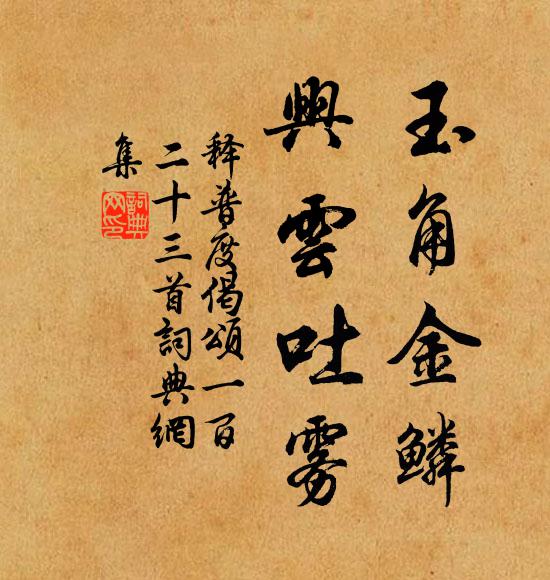 玉角金鳞
興雲吐雾
释普度偈頌一百
二十三首詞典網
集
詞典
网印